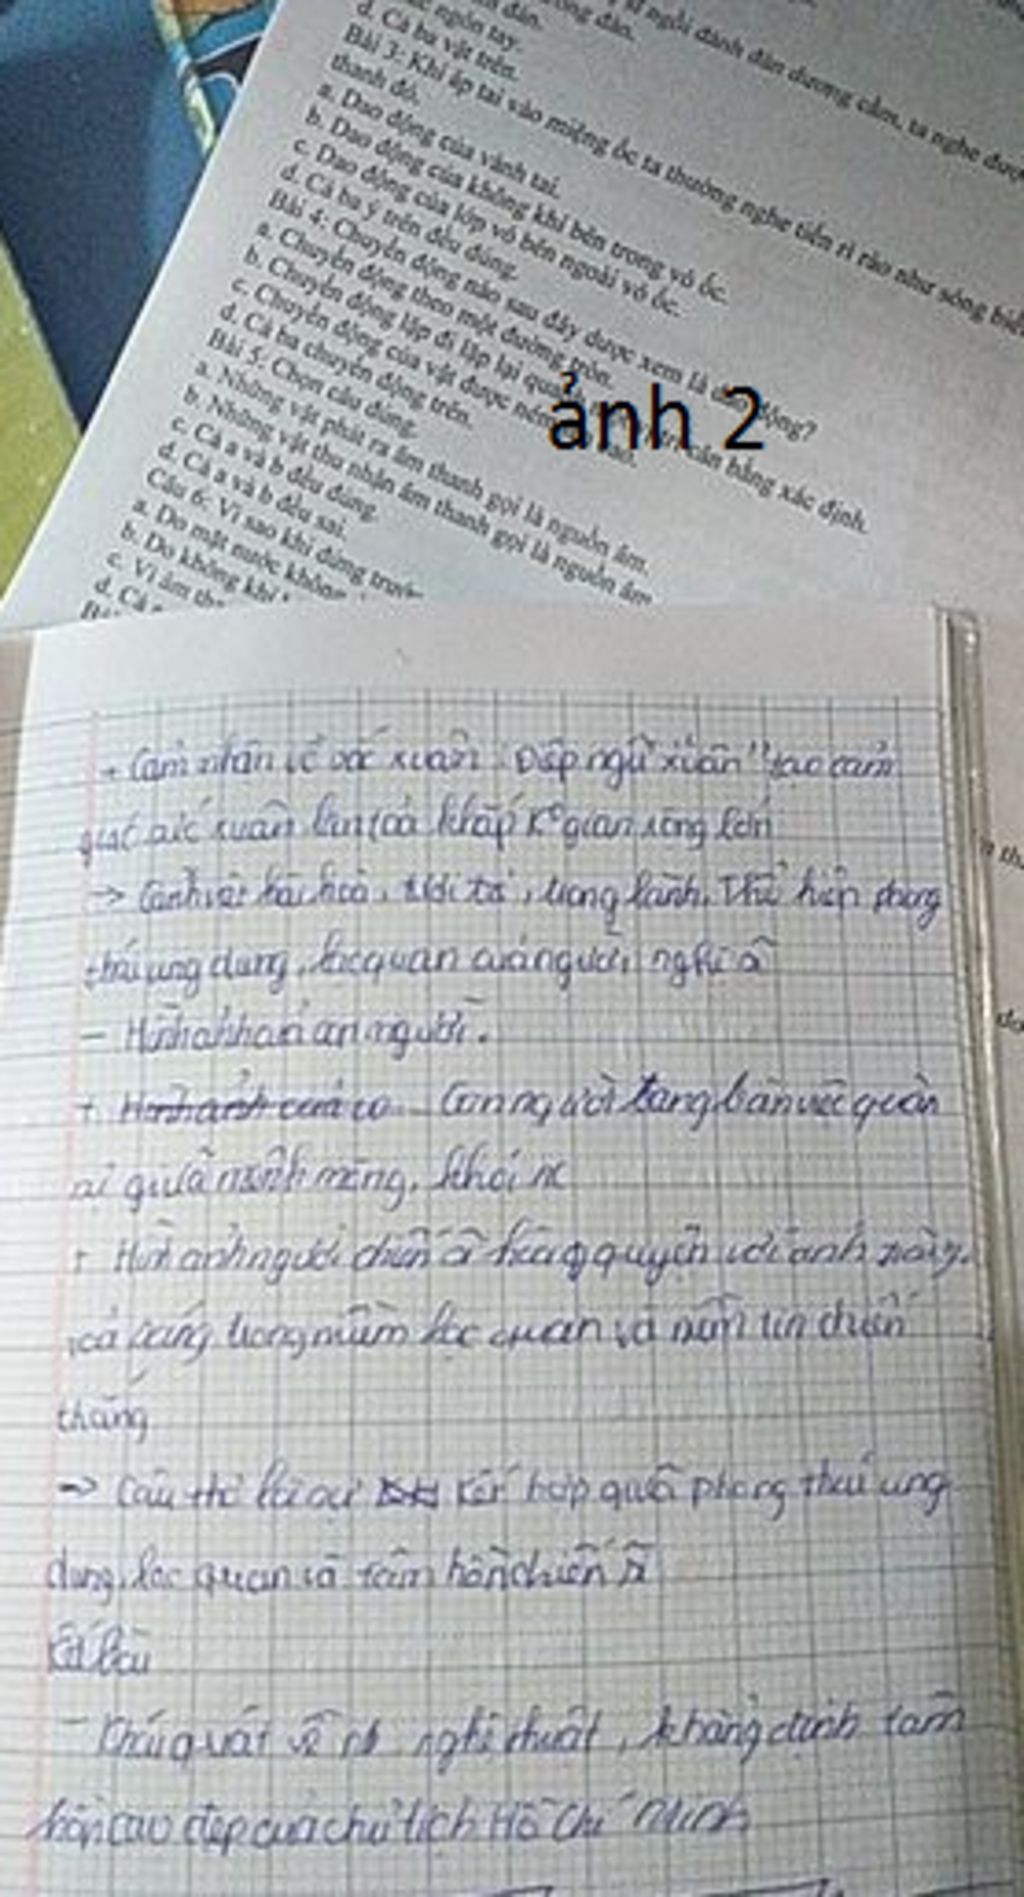 sĩ ngồi đánh đàn dương cầm, ta nghe được
d. Cả ba vật trên.
Bài 3: Khi áp tai vào miệng ốc ta thường nghe tiến rì rào như sóng biển
thanh đó.
a. Dao động của vành tai.
b. Dao động của không khí bên trong vỏ ốc.
c. Dao động của lớp vỏ bên ngoài vỏ ốc.
d. Cả ba ý trên đều đúng.
Bài 4: Chuyển động nào sau đây được xem là dao động?
a. Chuyển động theo một đường tròn.
b. Chuyển động lặp đi lặp lại quanh cân bằng xác định.
c. Chuyển động của vật được ném
d. Cả ba chuyển động trên.
Bài 5: Chọn câu đúng.
a. Những vật phát ra âm thanh gọi là nguồn âm.
b. Những vật thu nhận âm thanh gọi là nguồn âm
c. Cả a và b đều đúng.
d. Cả a và b đều sai.
Câu 6: Vì sao khi đứng trước
a. Do mặt nước không
b. Do không khí
c. Vì âm th
d. Cả
ảnh 2
+ Cảm nhận về sắc xuân: Điệp ngữ "xuân" tạo cảm
giác sắc xuân lan toả khắp k° gian rộng lớn
-> Cảnh vật hài hoà, tươi trẻ, trong lành. Thể hiện phong
thái ung dung, lạc quan của người nghệ sĩ
- Hình ảnh con người.
+ Con người đang bàn việc quân
giữa mênh mông, khói
+ Hình ảnh người chiến sĩ quyện với ánh trăng.
trong niềm lạc quan và niềm tin chiến
thắng
-> Câu thơ kết hợp giữa phong thái ung
dung, lạc quan và tâm hồn chiến sĩ
Kết bài
- Khái quát về nghệ thuật, khẳng định tâm
hồn cao đẹp của chủ tịch Hồ Chí Minh